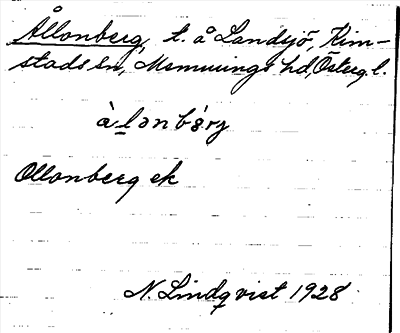 Ållonberg, t. å Landsjö, Kim-
stads sn, Memmings hd, Österg. l.
à lɘnbǽrj
Ollonberg ek
N. Lindqvist 1928